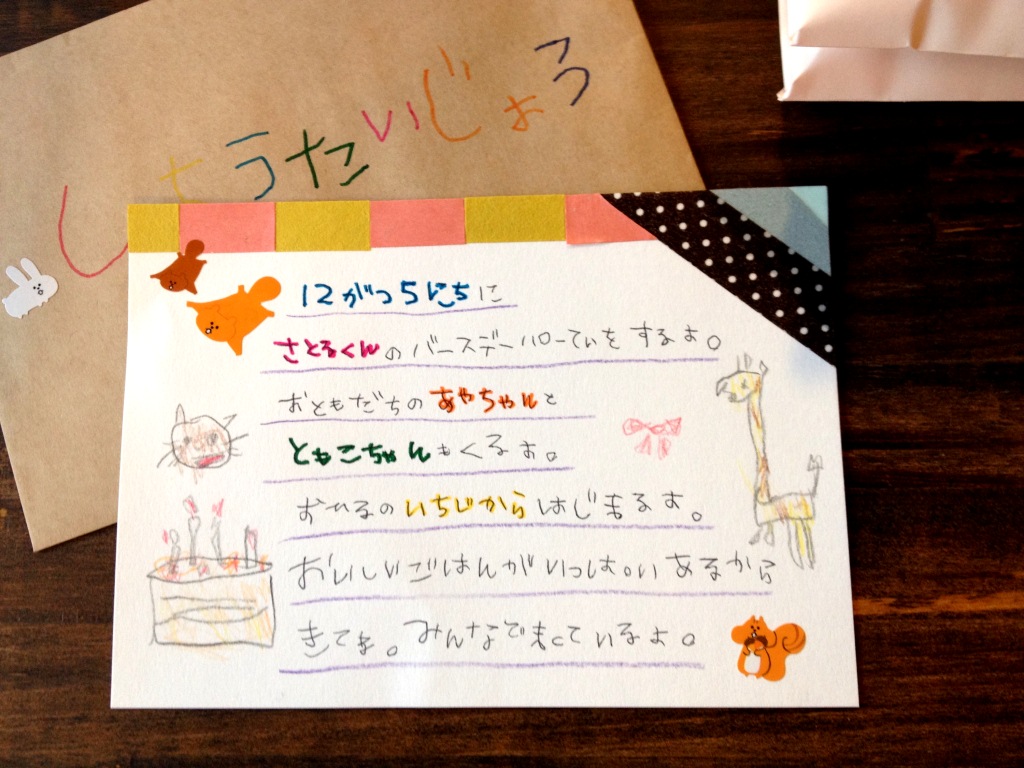 しょうたいじょう
12がつ5にちに
さとるくんのバースデーパーてぃをするよ。
おともだちのあやちゃんと
ともこちゃんもくるよ。
おひるのいちじからはじまるよ。
おいしいごはんがいっぱいあるから
きてね。みんなでまっているよ。